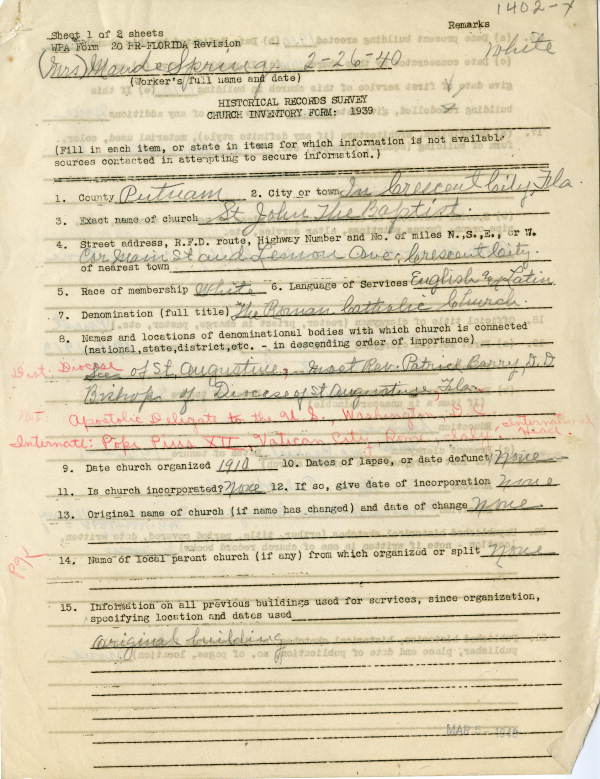 1402-X
Sheet 1 of 2 sheets Remarks
WPA Form 20 HR-FLORIDA Revision
White
(Mrs) Maude Springs 2-26-40
(Worker's full name and date)
HISTORICAL RECORDS SURVEY
CHURCH INVENTORY FORM: 1939
(Fill in each item, or state in items for which information is not available
sources contacted in attempting to secure information.)
1. County Putnam 2. City or town In Crescent City, Fla.
3. Exact name of church St. John The Baptist.
4. Street address, R.F.D. route, Highway Number and No. of miles N.,S.,E., or W.
Cor Main St and Lemon Ave, Crescent City.
of nearest town
5. Race of membership White 6. Language of Services English & Latin
7. Denomination (full title) The Roman Catholic Church.
8. Names and locations of denominational bodies with which church is connected
(national,state,district,etc. - in descending order of importance)
Dist: Diocese
See of St. Augustine, Most Rev. Patrick Barry, D.D
Bishop of Diocese of St Augustine, Fla.
Nat: Apostolic Delegate to the U.S., Washington, D.C.
Internatl: Pope Pius XII, Vatican City, Rome, Italy, International Head.
9. Date church organized 1910 10. Dates of lapse, or date defunct None
11. Is church incorporated? None 12. If so, give date of incorporation None
13. Original name of church (if name has changed) and date of change None
14. Name of local parent church (if any) from which organized or split None
15. Information on all previous buildings used for services, since organization,
specifying location and dates used
original building
MAR 5 - 1940